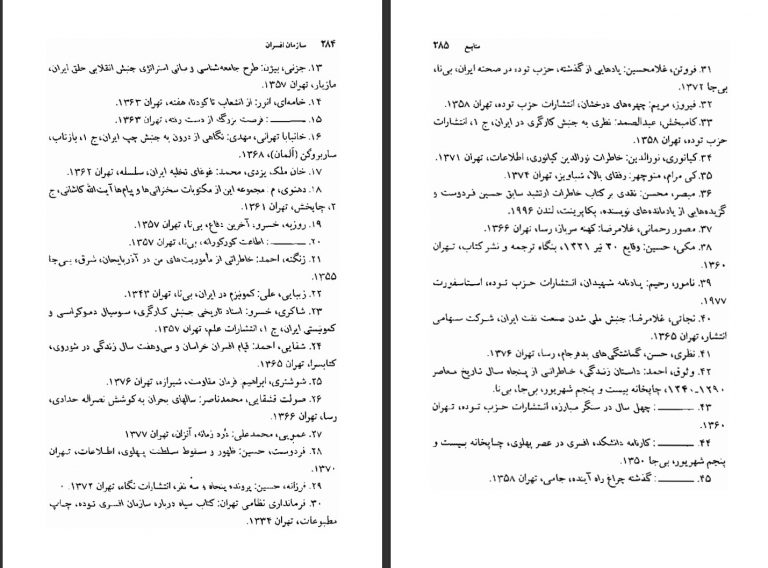 ۲۸۴ سازمان افسران
۱۳. جزنی، بیژن: طرح جامعه‌شناسی و مبانی استراتژی جنبش انقلابی خلق ایران،
مازیار، تهران ۱۳۵۷.
۱۴. خامه‌ای، انور: از انشعاب تا کودتا، هفته، تهران ۱۳۶۳.
۱۵. ـــــــــ : فرصت بزرگ از دست رفته، تهران ۱۳۶۳.
۱۶. خانبابا تهرانی، مهدی: نگاهی از درون به جنبش چپ ایران، ج ۱، بازتاب،
ساربروگن (آلمان)، ۱۳۶۸.
۱۷. خان ملک یزدی، محمد: غوغای تخلیه ایران، سلسله، تهران ۱۳۶۲.
۱۸. دهنوی، م. مجموعه این از مکتوبات سخنرانی‌ها و پیام‌ها آیت‌الله کاشانی، ج
۲، چاپخش، تهران ۱۳۶۱.
۱۹. روزبه، خسرو: آخرین دفاع، بی‌نا، تهران ۱۳۵۷.
۲۰. ـــــــــ : اطاعت کورکورانه، بی‌نا، تهران ۱۳۵۷.
۲۱. زنگنه، احمد: خاطراتی از مأموریت‌های من در آذربایجان، شرق، بی‌جا
۱۳۵۵.
۲۲. زیبایی، علی: کمونیزم در ایران، بی‌نا، تهران ۱۳۴۳.
۲۳. شاکری، خسرو: اسناد تاریخی جنبش کارگری، سوسیال دموکراسی و
کمونیستی ایران، ج ۱، انتشارات علم، تهران ۱۳۵۷.
۲۴. شفایی، احمد: قیام افسران خراسان و سی‌وهفت سال زندگی در شوروی،
کتابسرا، تهران ۱۳۶۵.
۲۵. شوشتری، ابراهیم: فرمان مقاومت، شیرازه، تهران ۱۳۷۶.
۲۶. صولت قشقایی، محمدناصر: سالهای بحران به‌کوشش نصراله حدادی،
رسا، تهران ۱۳۶۶.
۲۷. عمویی، محمدعلی: دُرد زمانه، آنزان، تهران ۱۳۷۷
۲۸. فردوست، حسین: ظهور و سقوط سلطنت پهلوی، اطلاعات، تهران
۱۳۷۰.
۲۹. فرزانه، حسین: پرونده پنجاه و سه نفر، انتشارات نگاه، تهران ۱۳۷۲.
۳۰. فرمانداری نظامی تهران: کتاب سیاه درباره سازمان افسری توده، چاپ
مطبوعات، تهران ۱۳۳۴.
منابع ۲۸۵
۳۱. فروتن، غلامحسین: یادهایی از گذشته، حزب توده در صحنه ایران، بی‌نا،
بی‌جا ۱۳۷۲.
۳۲. فیروز، مریم: چهره‌های درخشان، انتشارات حزب توده، تهران ۱۳۵۸.
۳۳. کامبخش، عبدالصمد: نظری به جنبش کارگری در ایران، ج ۱، انتشارات
حزب توده، تهران ۱۳۵۸.
۳۴. کیانوری، نورالدین: خاطرات نورالدین کیانوری، اطلاعات، تهران ۱۳۷۱.
۳۵. کی مرام، منوچهر: رفقای بالا، شباویز، تهران ۱۳۷۴.
۳۶. مبصر، محسن: نقدی بر کتاب خاطرات ارتشبد سابق حسین فردوست و
گزیده‌هایی از یادمانده‌های نویسنده، پکاپرینت، لندن ۱۹۹۶.
۳۷. مصور رحمانی، غلامرضا: کهنه سرباز، رسا، تهران ۱۳۶۶
۳۸. مکی، حسین: وقایع ۳۰ تیر ۱۳۳۱، بنگاه ترجمه و نشر کتاب، تهران
۱۳۶۰.
۳۹. نامور، رحیم: یادنامه شهیدان، انتشارات حزب توده، استاسفورت
۱۹۷۷.
۴۰. نجاتی، غلامرضا: جنبش ملی شدن صنعت نفت ایران، شرکت سهامی
انتشار، تهران ۱۳۶۵.
۴۱. نظری، حسن، گماشتگی‌های بدفرجام، رسا، تهران ۱۳۷۶.
۴۲. وثوق، احمد: داستان زندگی، خاطراتی از پنجاه سال تاریخ معاصر
۱۲۹۰ـ۱۳۴۰، چاپخانه بیست و پنجم شهریور، بی‌جا، بی‌نا.
۴۳. ـــــــــ : چهل سال در سنگر مبارزه، انتشارات حزب توده، تهران
۱۳۶۰.
۴۴. ـــــــــ : کارنامه دانشکده افسری در عصر پهلوی، چاپخانه بیست و
پنجم شهریور، بی‌جا ۱۳۵۰.
۴۵. ـــــــــ : گذشته چراغ راه آینده، جامی، تهران ۱۳۵۸.